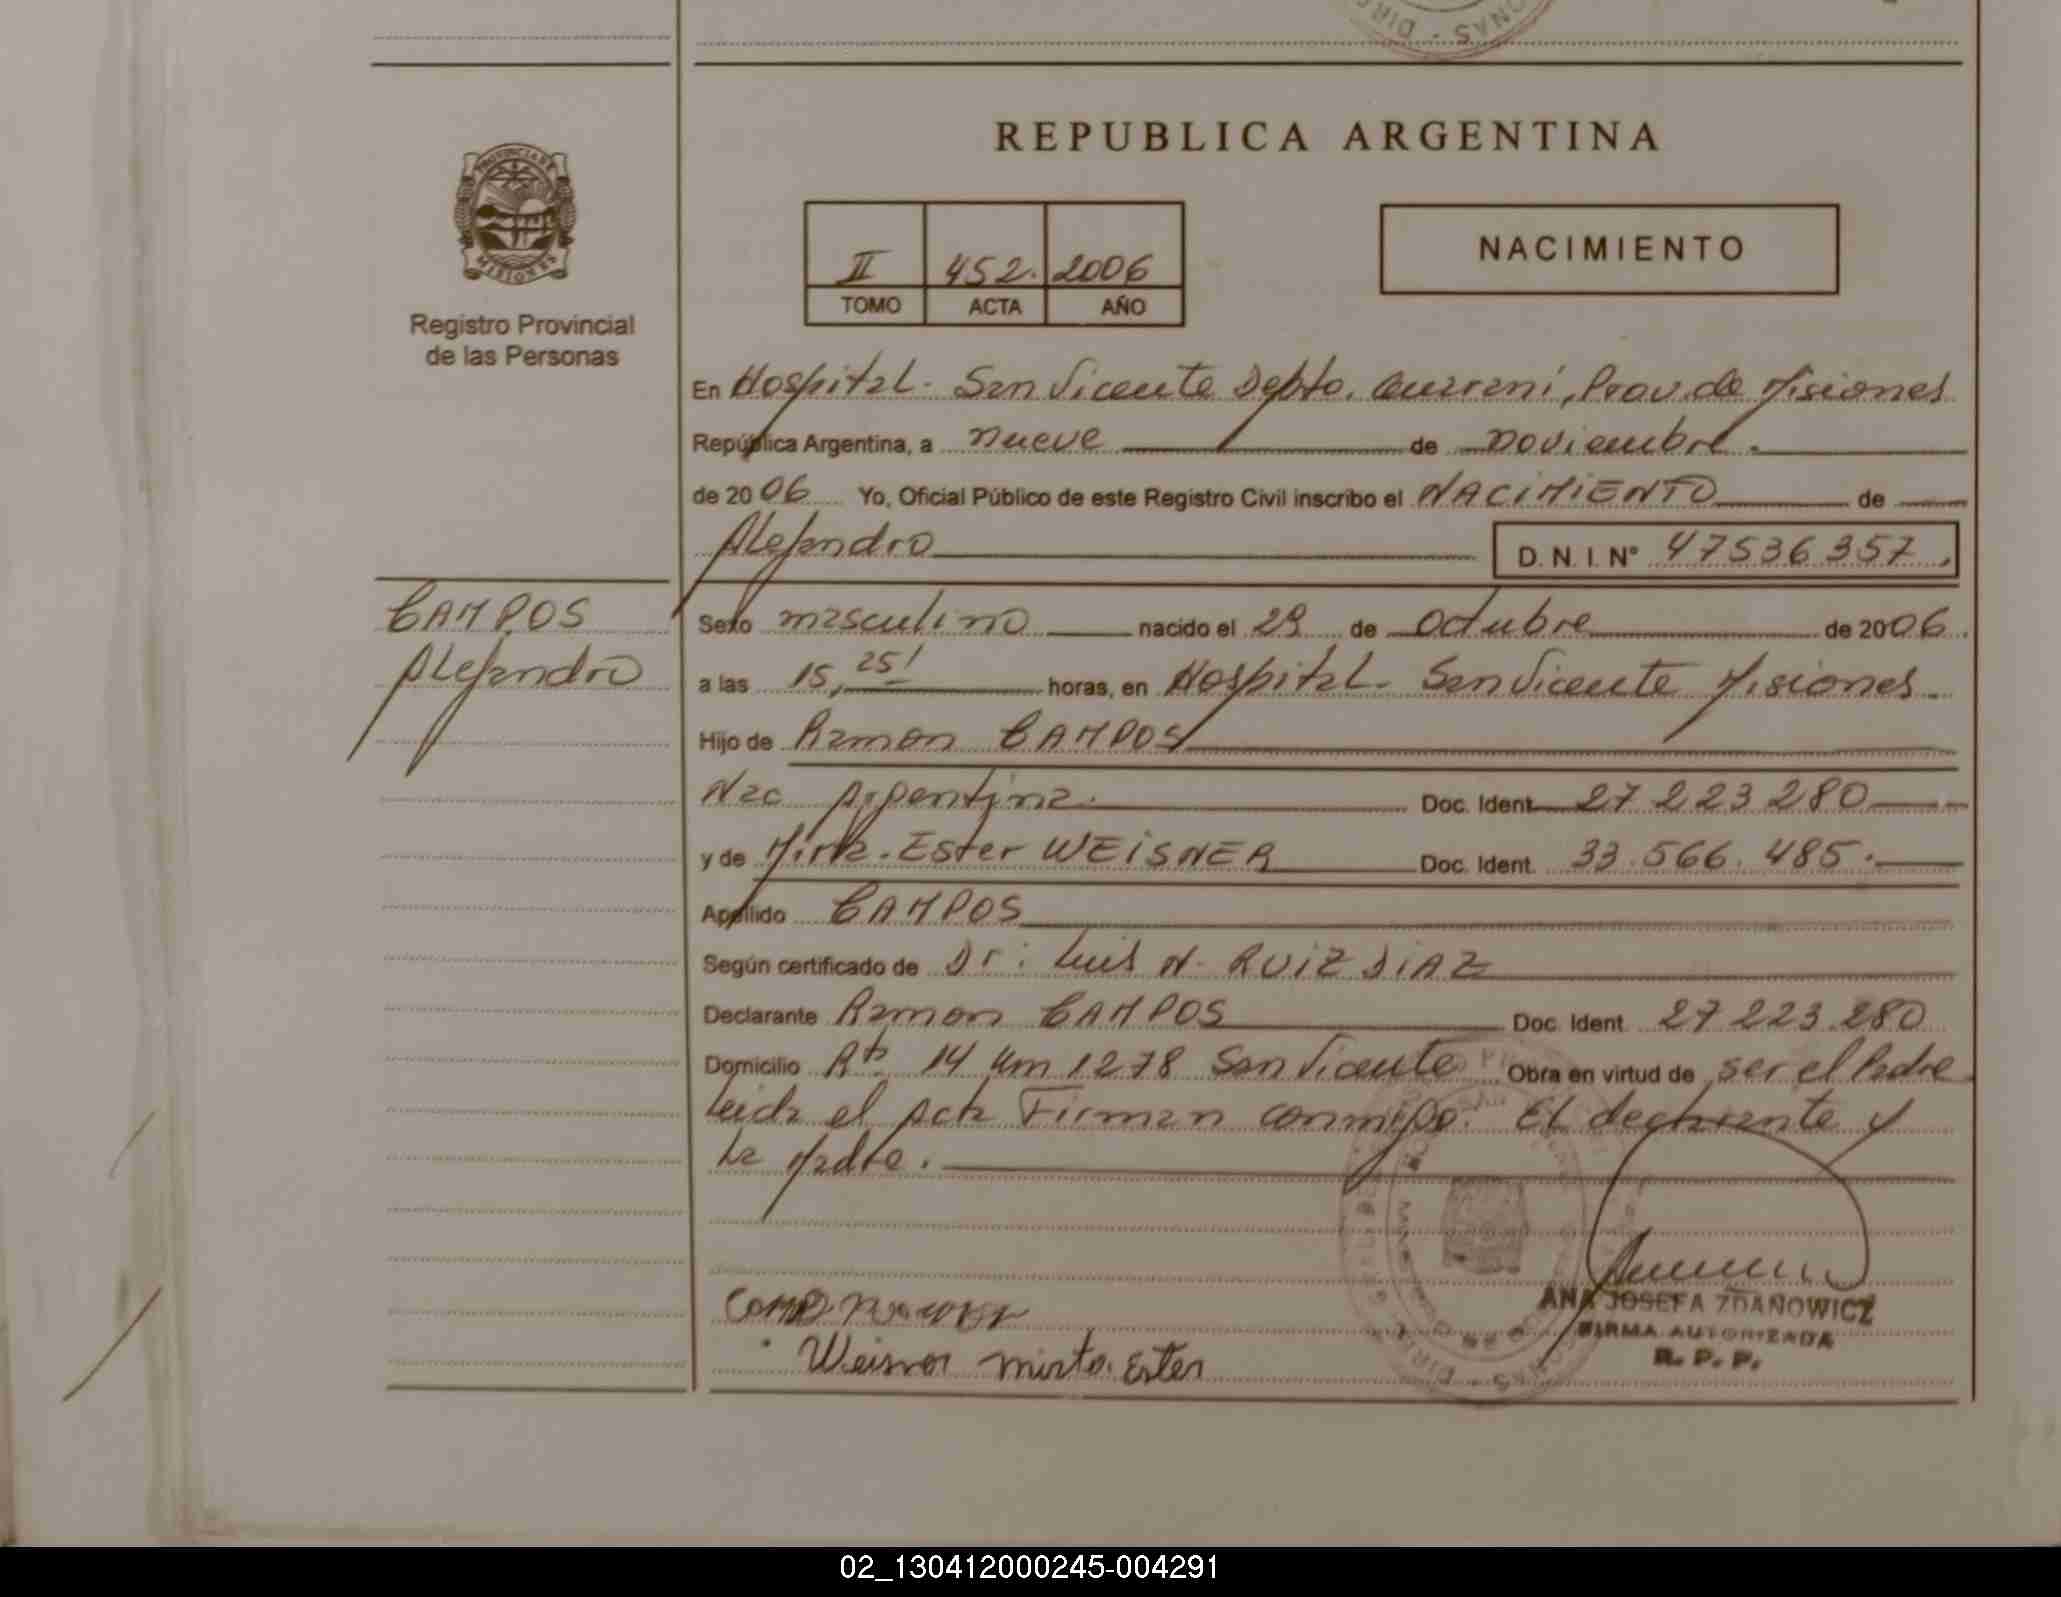 REPUBLICA ARGENTINA
PROVINCIA DE
MISIONES
Registro Provincial
de las Personas
II 452. 2006
TOMO ACTA AÑO
NACIMIENTO
En Hospital - San Vicente Depto. Guarani, Prov. de Misiones
República Argentina, a nueve de noviembre.
de 2006 Yo, Oficial Público de este Registro Civil inscribo el NACIMIENTO de
Alejandro D. N. I. N° 47536357.
CAMPOS
Alejandro
Sexo masculino nacido el 29 de Octubre de 2006.
a las 15,25' horas, en Hospital - San Vicente Misiones.
Hijo de Ramon CAMPOS
Nac Argentina. Doc. Ident. 27 223 280
y de Mirta - Ester WEISNER Doc. Ident. 33.566.485.
Apellido CAMPOS
Según certificado de Dr: Luis N. RUIZ DIAZ
Declarante Ramon CAMPOS Doc. Ident. 27 223.280
Domicilio Rta 14 Km 1278 San Vicente Obra en virtud de ser el Padre
Leida el Acta Firman conmigo: El declarante y
La Madre.
Weisner mirta Ester
ANA JOSEFA ZDANOWICZ
FIRMA AUTORIZADA
R. P. P.
02_130412000245-004291